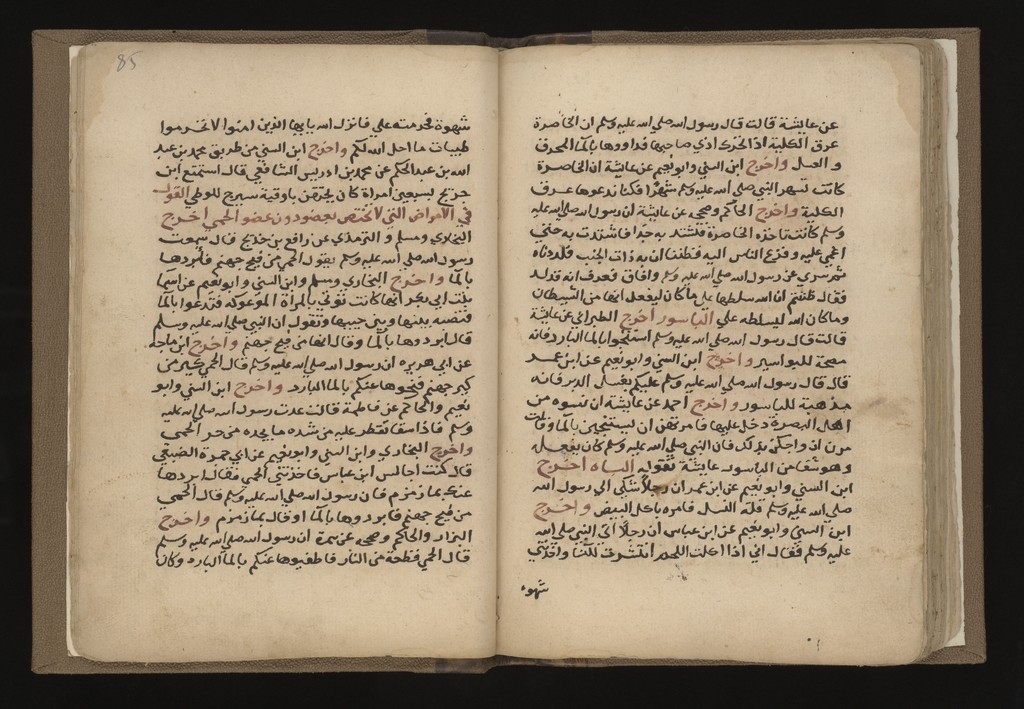 عن عايشة قالت قال رسول الله صلي الله عليه وسلم ان الخاصرة
عرق الكلية اذا تحرك اذي صاحبها فداووها بالما المحرق
و العسل واخرج ابن السني وابو نعيم عن عايشة ان الخاصرة
كانت تسهر النبي صلي الله عليه وسلم شهرا فكنا ندعوها عرق
الكلية واخرج الحاكم وصححه عن عايشة ان رسول الله صلي الله عليه
وسلم كانت تاخذه الخاصرة فتشتد به جدا فاشتدت به حتي
اغمي عليه وفزع الناس اليه فظننا ان به ذات الجنب فلددناه
ثم سري عن رسول الله صلي الله عليه وسلم وافاق فعرف انه قد لد
فقال ظننتم ان الله سلطها علي ما كان ليفعل انها من الشيطان
وما كان الله ليسلطه علي الباسور اخرج الطبراني عن عايشة
قالت قال رسول الله صلي الله عليه وسلم استنجوا بالما البارد فانه
مصحة للبواسير واخرج ابن السني وابو نعيم عن ابن عمر
قال قال رسول الله صلي الله عليه وسلم عليكم بغسل الدبر فانه
مذهبة للباسور واخرج احمد عن عايشة ان نسوه من
اهل البصرة دخلن عليها فامرتهن ان يستنجين بالما وقالت
مرن ازواجكن بذلك فان النبي صلي الله عليه وسلم كان يفعله
وهو شفا من الباسور عايشة تقوله الباه اخرج
ابن السني وابو نعيم عن ابن عمر ان رجلا شكي الي رسول الله
صلي الله عليه وسلم قلة النسل فامره باكل البيض واخرج
ابن السني وابو نعيم عن ابن عباس ان رجلا اتي النبي صلي الله
عليه وسلم فقال اني اذا اكلت اللحم انتشرت للنسا واخذتني
شهوه
85
شهوة فحرمته علي فانزل الله يا يها الذين امنوا لا تحرموا
طيبات ما احل الله لكم واخرج ابن السني من طريق محمد بن عبد
الله بن عبد الحكم عن محمد بن ادريس الشافعي قال استمتع ابن
جريج بسبعين امراة كان يحتقن باوقية سيرج للوطي القول
في الامراض التي لا تختص بعضو دون عضو الحمي اخرج
البخاري ومسلم و الترمذي عن رافع بن خديج قال سمعت
رسول الله صلي الله عليه وسلم يقول الحمي من فيح جهنم فابردوها
بالما واخرج البخاري ومسلم وابن السني وابو نعيم عن اسما
بنت ابي بكر انها كانت توتي بالمراة الموعوكة فتدعوا بالما
فتصبه بينها وبين جيبها وتقول ان النبي صلي الله عليه وسلم
قال ابردوها بالما وقال انها من فيح جهنم واخرج ابن ماجه
عن ابي هريره ان رسول الله صلي الله عليه وسلم قال الحمي كير من
كير جهنم فنحوها عنكم بالما البارد واخرج ابن السني وابو
نعيم والحاكم عن فاطمة قالت عدت رسول الله صلي الله عليه
وسلم فاذا سقا تقطر عليه من شده ما يجده من حر الحمي
واخرج البخاري وابن السني وابو نعيم عن ابي جمرة الضبعي
قال كنت اجالس ابن عباس فاخذتني الحمي فقال ابردها
عنك بما زمزم فان رسول الله صلي الله عليه وسلم قال الحمي
من فيح جهنم فابردوها بالما او قال بما زمزم واخرج
البزار والحاكم وصححه عن سمرة ان رسول الله صلي الله عليه وسلم
قال الحمي قطعة من النار فاطفيوها عنكم بالما البارد وكان